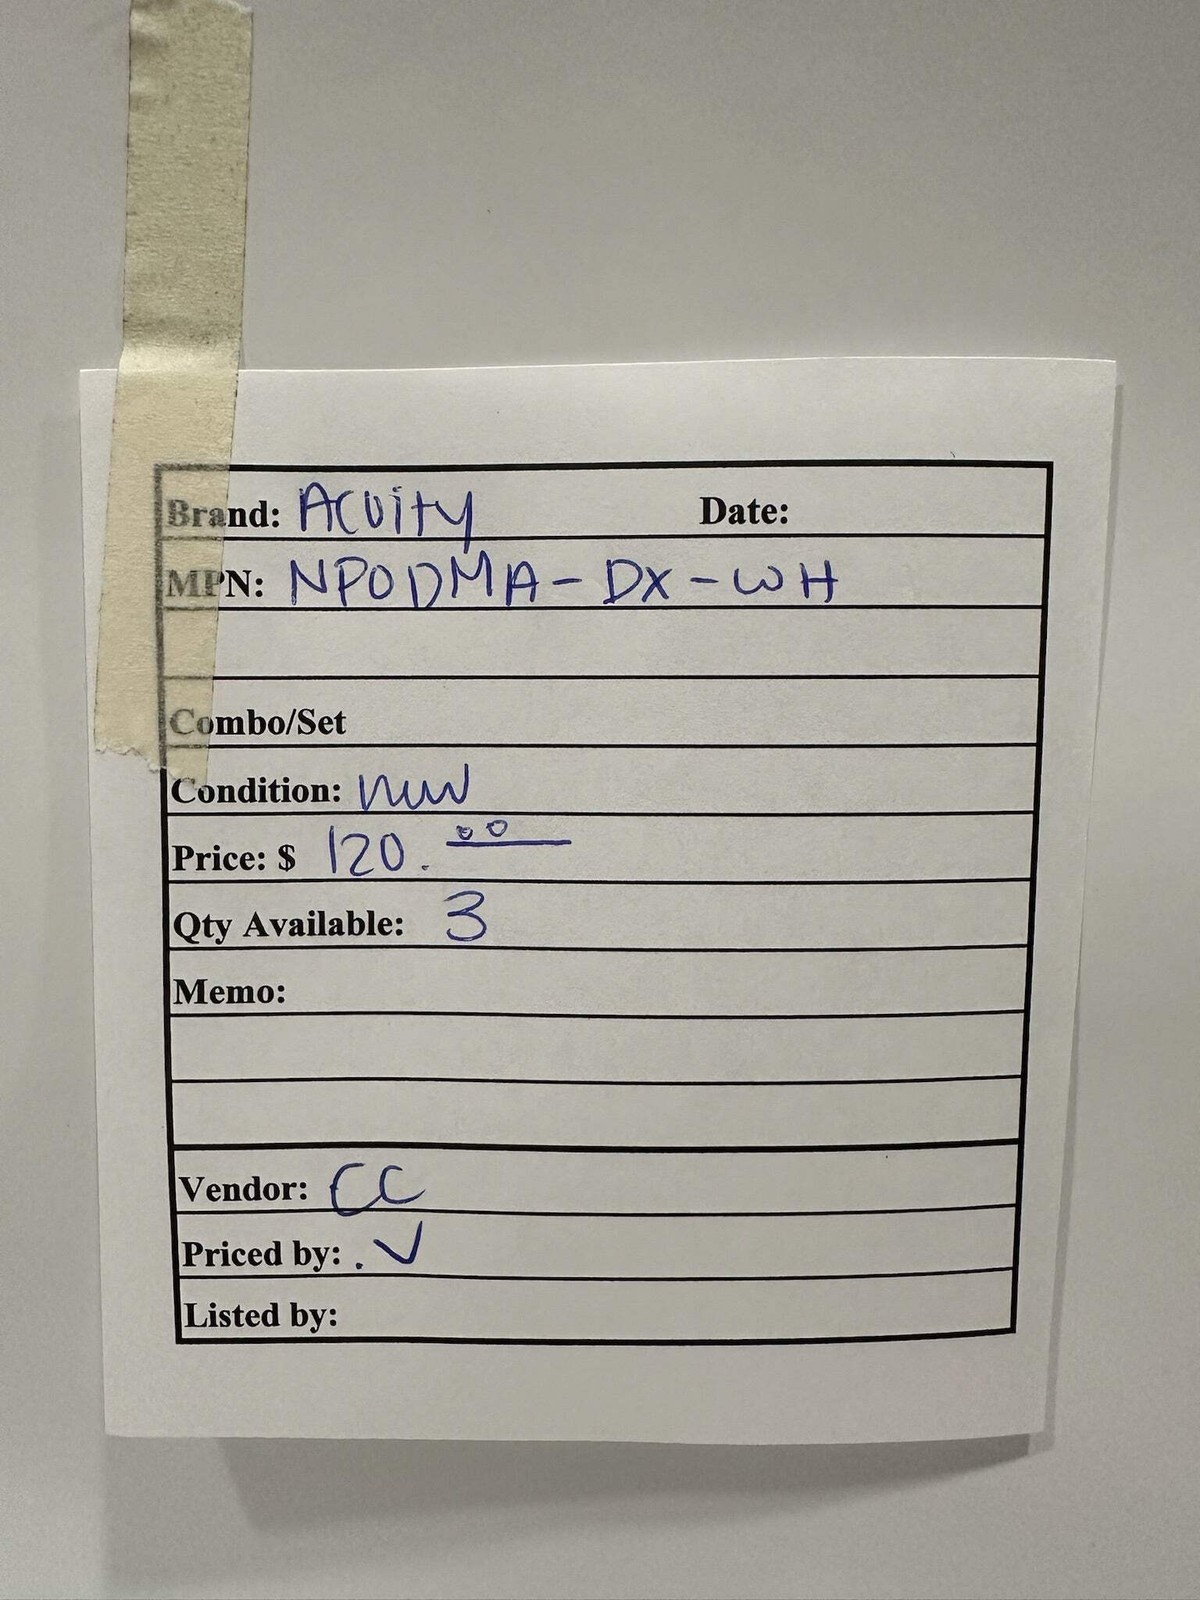 Brand: Acuity Date:
MPN: NPODMA-DX-WH
Combo/Set
Condition: new
Price: $ 120.00
Qty Available: 3
Memo:
Vendor: CC
Priced by: .V
Listed by: